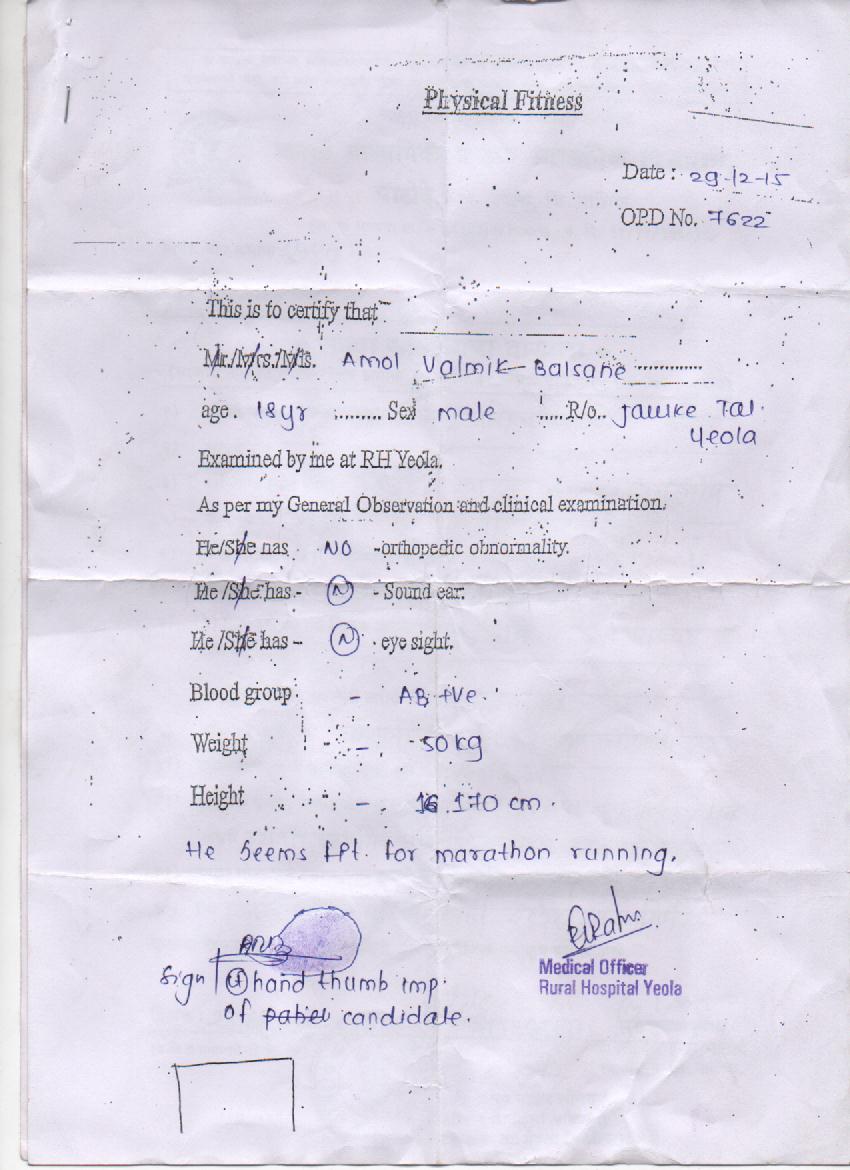 Physical Fitness
Date : 29-12-15
OPD No. 7622
This is to certify that
Mr./Mrs./Ms. Amol Valmik Balsane ............
age. 18yr ......... Sex male ..... R/o.. Jaulke Tal.
Yeola
Examined by me at RH Yeola.
As per my General Observation and clinical examination.
He/She has NO -orthopedic obnormality.
He /She has - N - Sound ear.
He /She has - N - eye sight.
Blood group - AB +ve.
Weight - - 50 kg
Height - 170 cm.
He seems fit for marathon running.
Medical Officer
Rural Hospital Yeola
Sign / hand thumb imp.
of candidate.